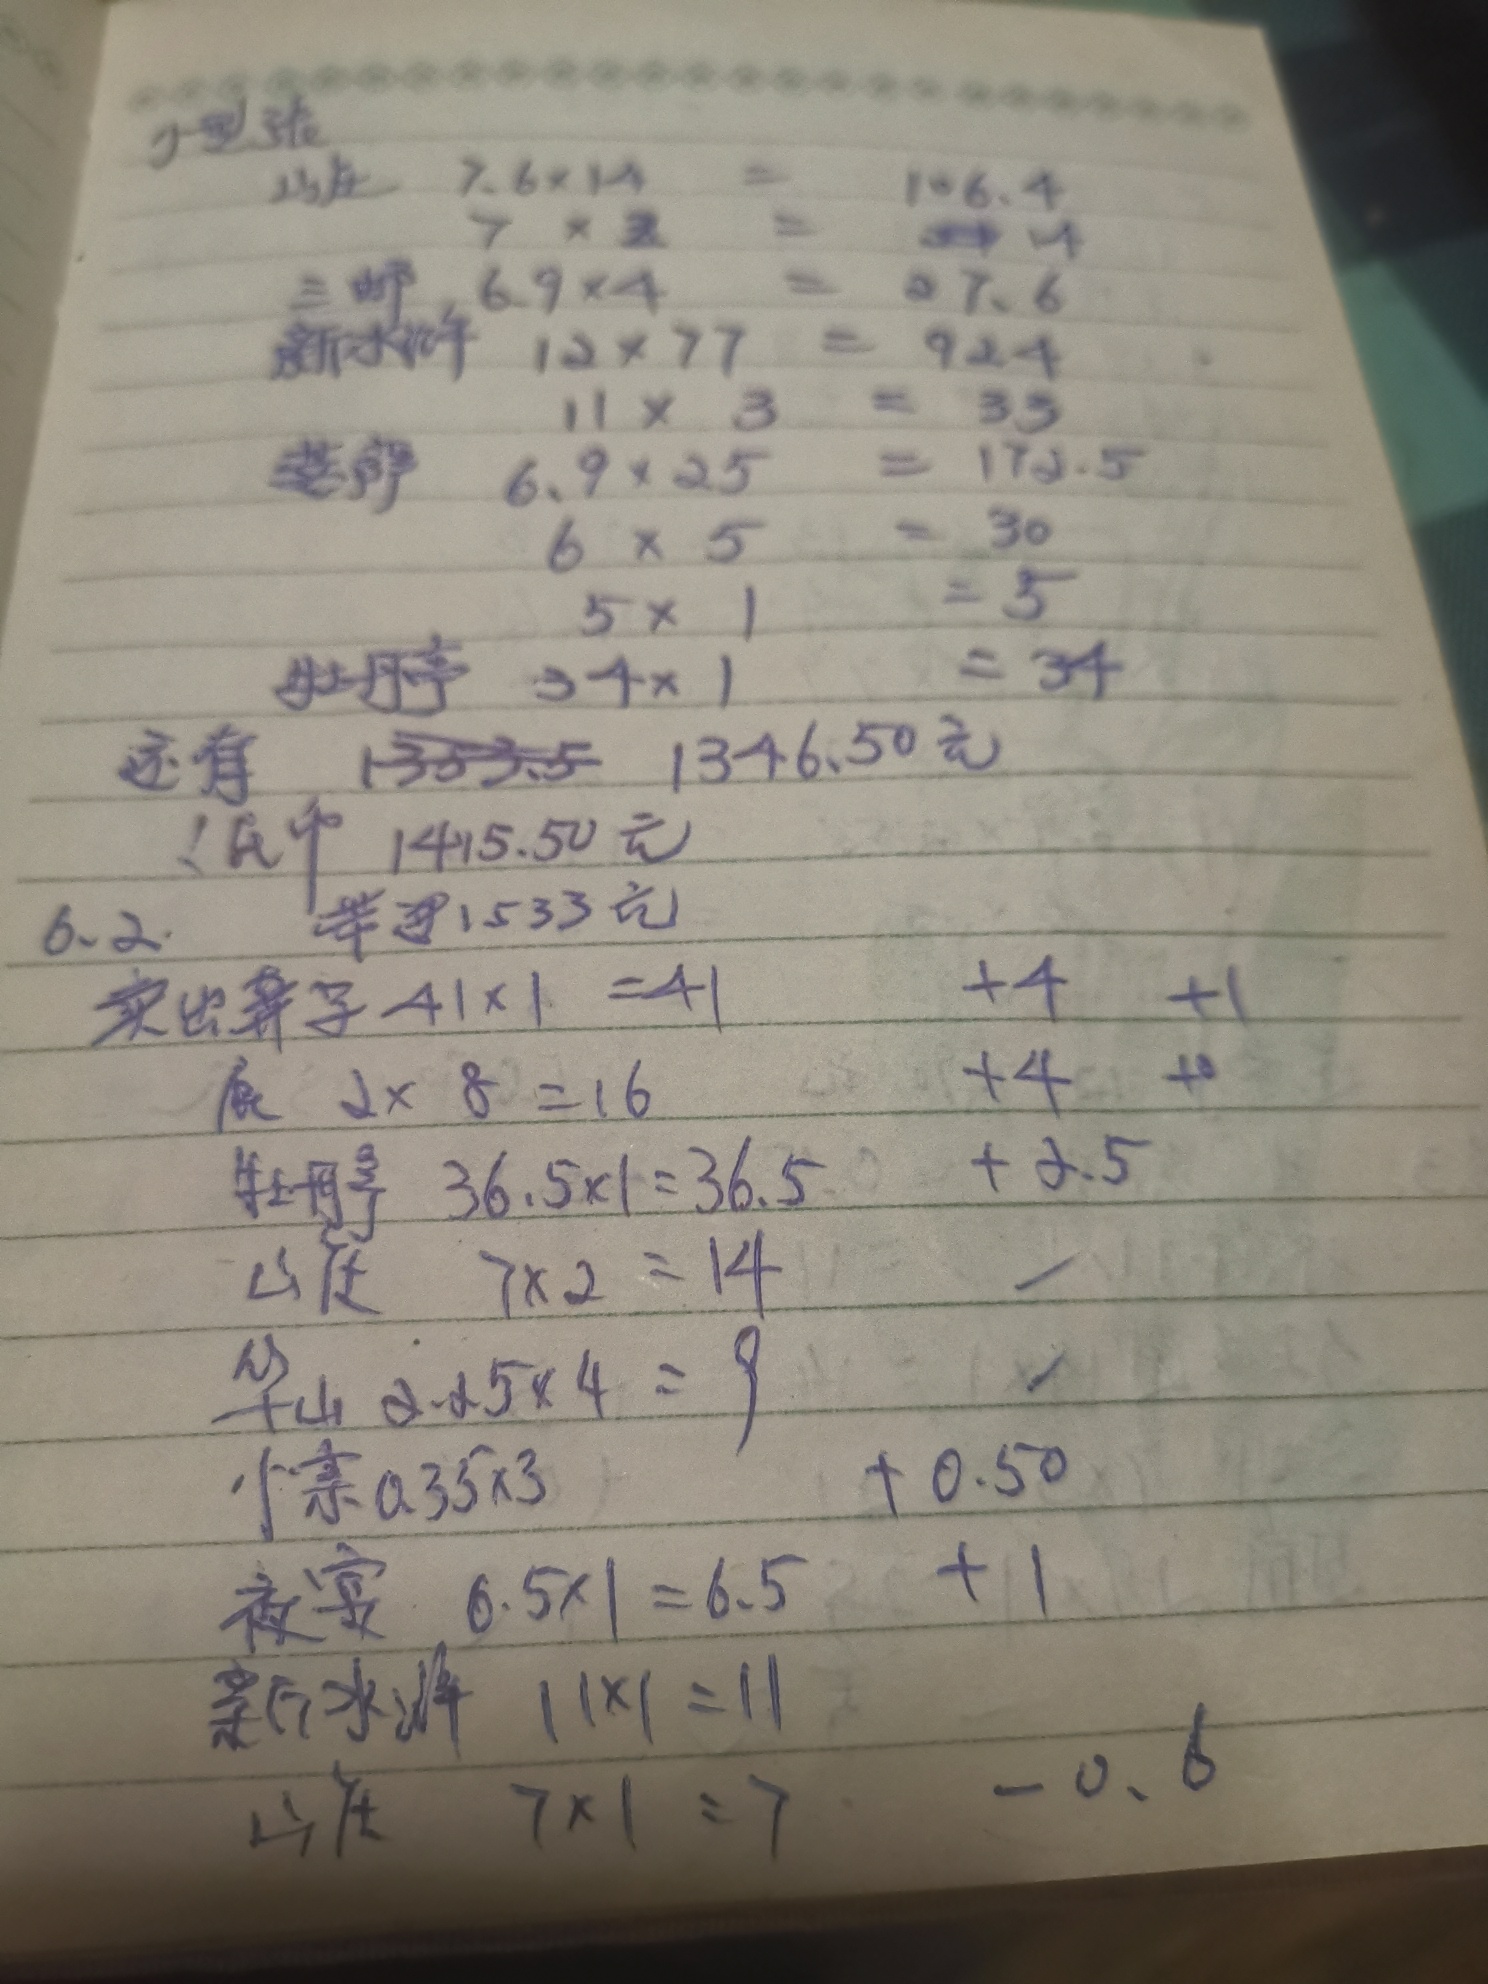 小型张
山庄 7.6×14 = 106.4
7 × 2 = 14
三邮 6.9×4 = 27.6
新水浒 12×77 = 924
11 × 3 = 33
6.9×25 = 172.5
6 × 5 = 30
5 × 1 = 5
牡丹亭 34×1 = 34
还有 1346.50元
1415.50元
6.2. 1533元
卖出 41×1 =41 +4 +1
2× 8 =16 +4
牡丹亭 36.5×1=36.5 +2.5
山庄 7×2 = 14
华山 2.25×4 = 9
0.35×3 +0.50
夜宴 6.5×1=6.5 +1
新水浒 11×1=11
山庄 7×1=7 -0.6